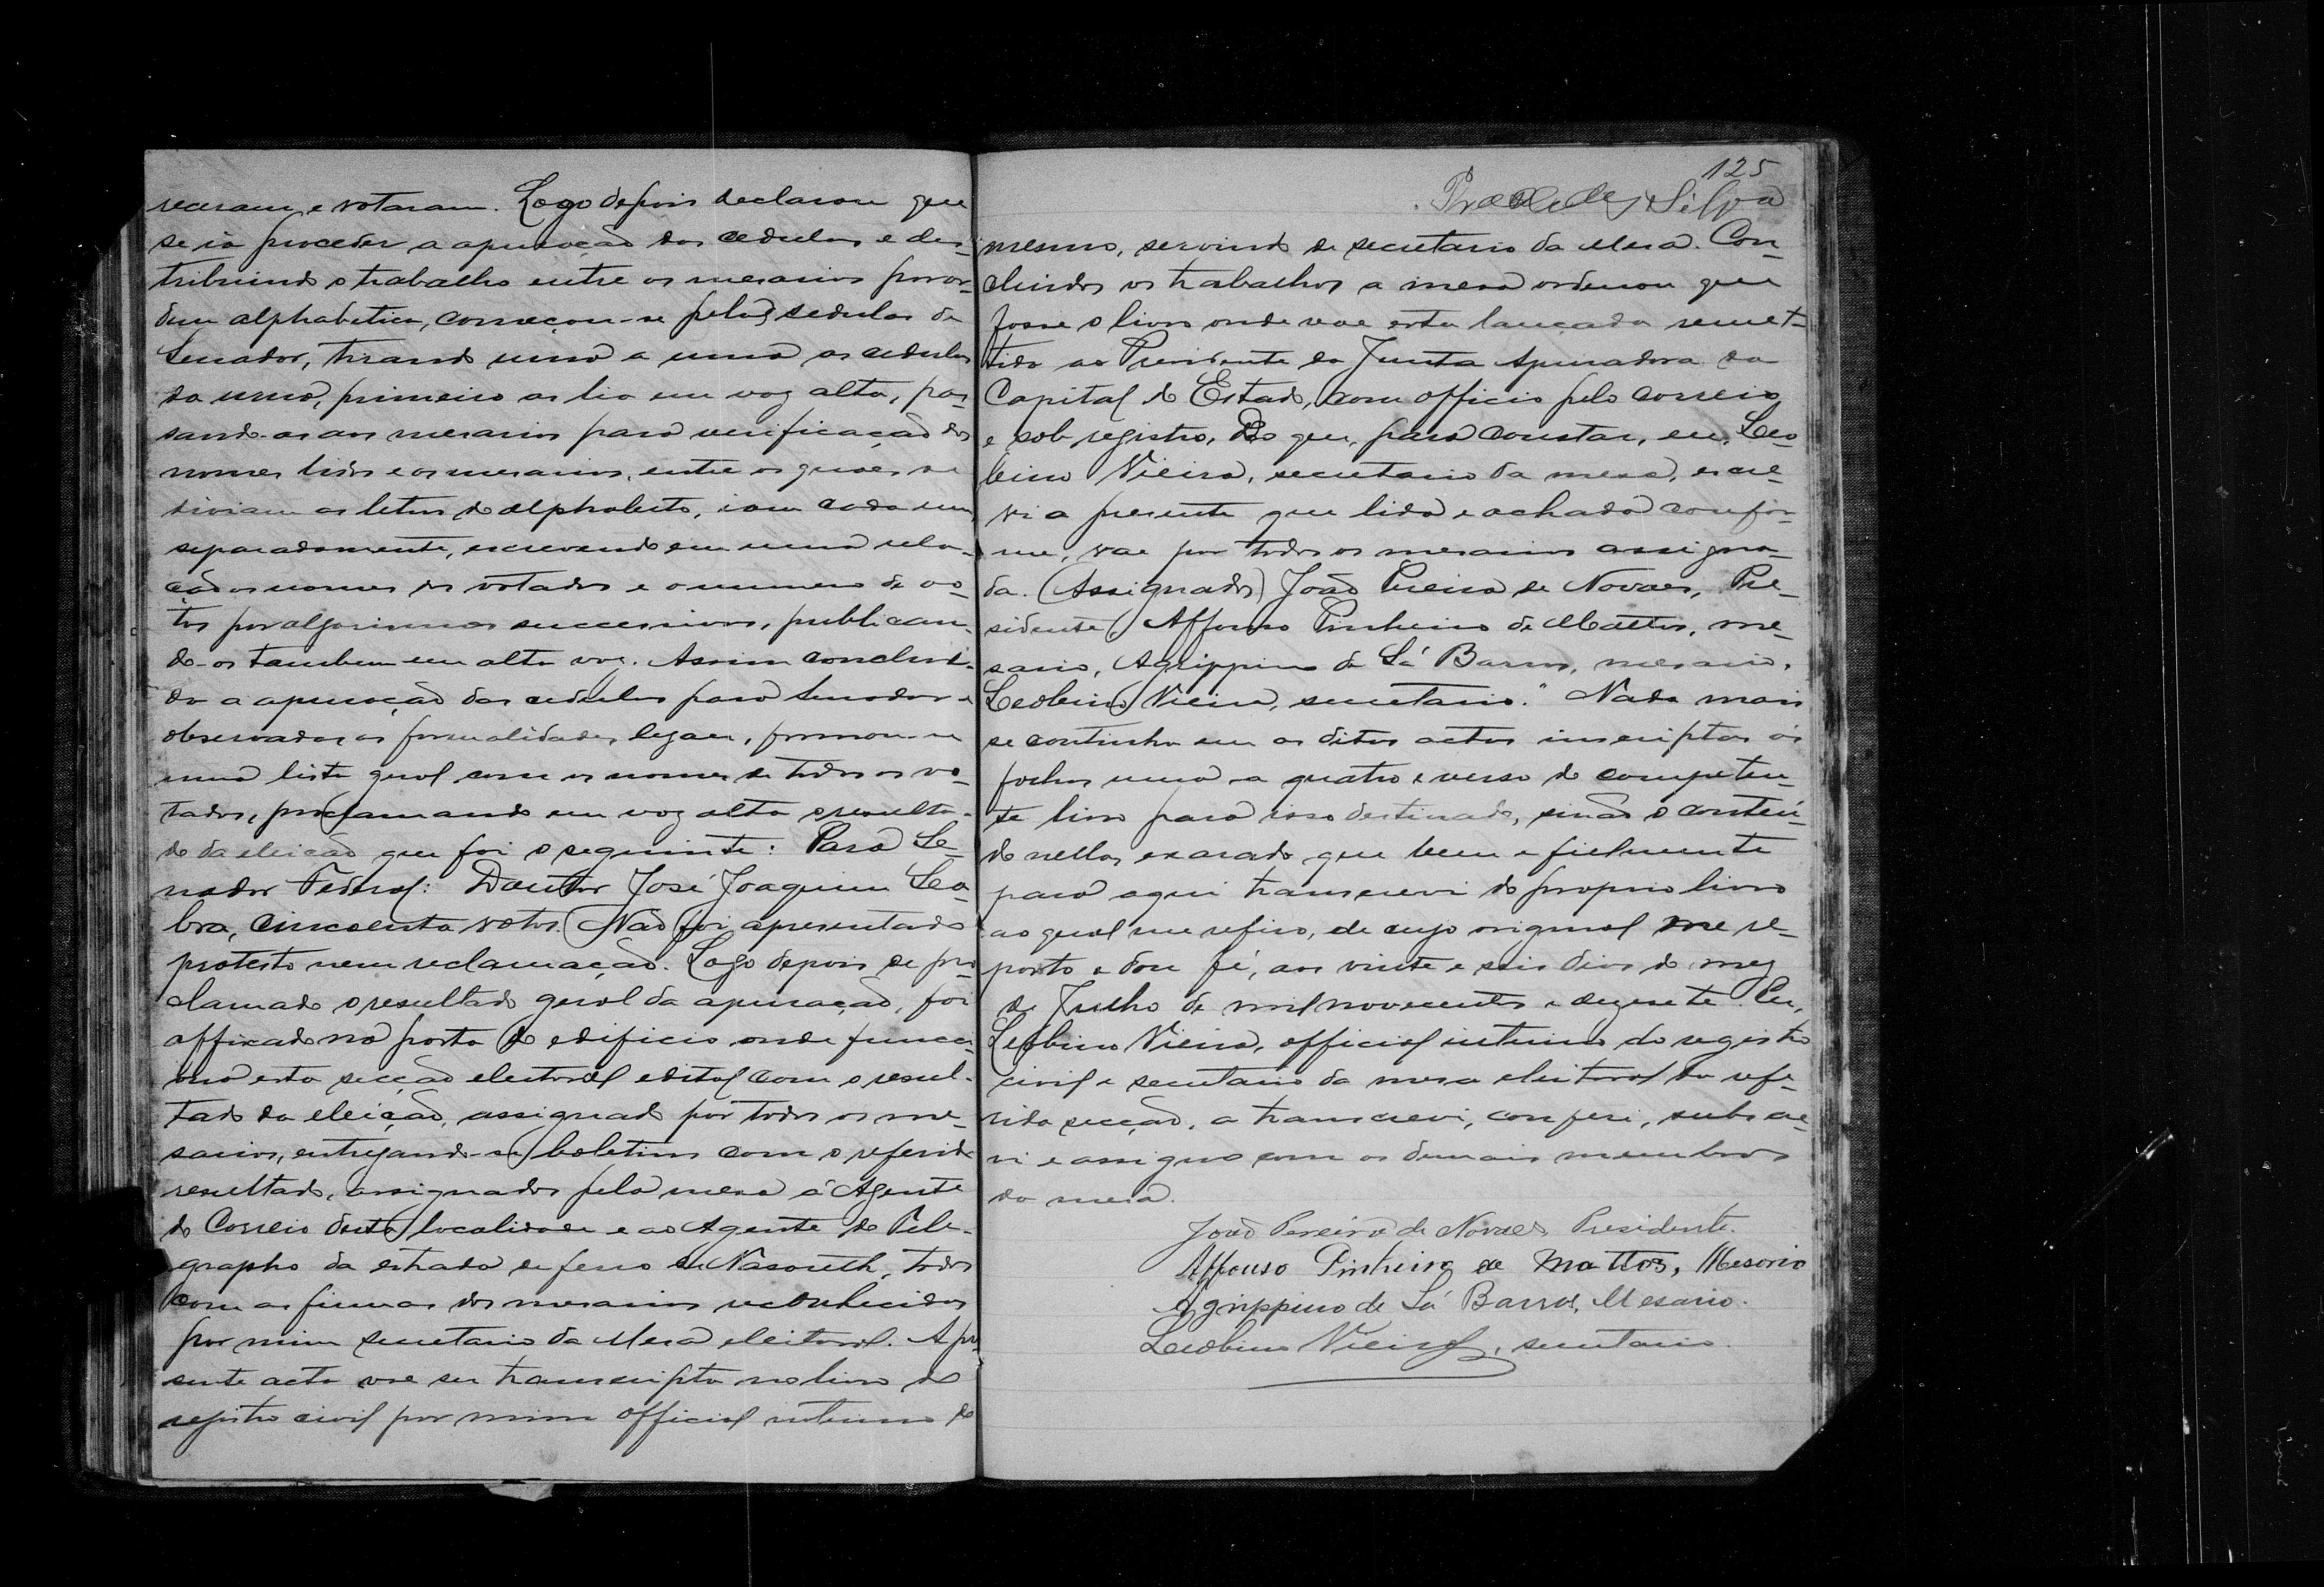 receram e votaram. Logo depois declarou que
se ia proceder a apuração das cedulas e des-
tribuindo o trabalho entre os mesarios por or-
dem alphabetica, começou-se pelas sedulas de
Senador, tirando uma a uma as cedulas
da urna, primeiro as lia em voz alta, pas-
sando-as aos mesarios para verificação dos
nomes lidos e os mesarios, entre os quaes se
diviram as letras do alphabeto, iam cada um
separadamente, escrevendo em uma rela-
ção os nomes dos votados e o numero de vo-
tos por algarismos successivos, publican-
do-os tambem em alta voz. Assim conclui-
da a apuração das cedulas para Senador e
observadas as formalidades legaes, formou-se
uma lista geral com os nomes de todos os vo-
tados, proclamando em voz alta o resulta-
do da eleição que foi o seguinte: Para Se-
nador Federal: Doutor José Joaquim Sea-
bra, cincoenta votos. Não foi apresentado
protesto nem reclamação. Logo depois de pro-
clamado o resultado geral da apuração, foi
affixado na porta do edificio onde funcci-
ona esta secção eleitoral edital com o resul-
tado da eleição, assignado por todos os me-
sarios, entregando-se boletins com o referido
resultado, assignados pela mesa á Agente
do Correio desta localidade e ao Agente do Tele-
grapho da estrada de ferro de Nasareth, todos
com as firmas dos mesarios reconhecidas
por mim secretario da Mesa eleitoral. A pre-
sente acta vae ser transcripta no livro do
registro civil por mim official interino do
125
Silva
mesmo, servindo de secretario da Mesa. Con-
cluidos os trabalhos a mesa ordenou que
fosse o livro onde vae esta lançada remet-
tido ao Presidente da Junta Apuradora da
Capital do Estado, com officio pelo correio
e sob registro. Do que, para constar, eu, Leo-
bino Vieira, secretario da mesa, escre-
vi a presente que lida e achada confor-
me, vae por todos os mesarios assigna-
da. (Assignados) João Pereira de Novaes, Pre-
sidente, Affonso Pinheiro de Mattos, me-
sario, Agrippino de Sá Barros, mesario,
Leobino Vieira, secretario." Nada mais
se continha em as ditas actas inscriptas ás
folhas uma a quatro e verso do competen-
te livro para isso destinado, sinão o conteú-
do nellas exarado que bem e fielmente
para aqui transcrevi do proprio livro
ao qual me refiro, de cujo original me re-
porto e dou fé, aos vinte e seis dias do mez
de Julho de mil novecentos e dezesete. Eu,
Leobino Vieira, official interino do registro
civil e secretario da mesa eleitoral da refe-
rida secção, a transcrevi, conferi, subscre-
vi e assigno com os demais membros
da mesa.
João Pereira de Novaes Presidente.
Affonso Pinheiro de Mattos, Mesario
Agrippino de Sá Barros, Mesario.
Leobino Vieira, secretario.